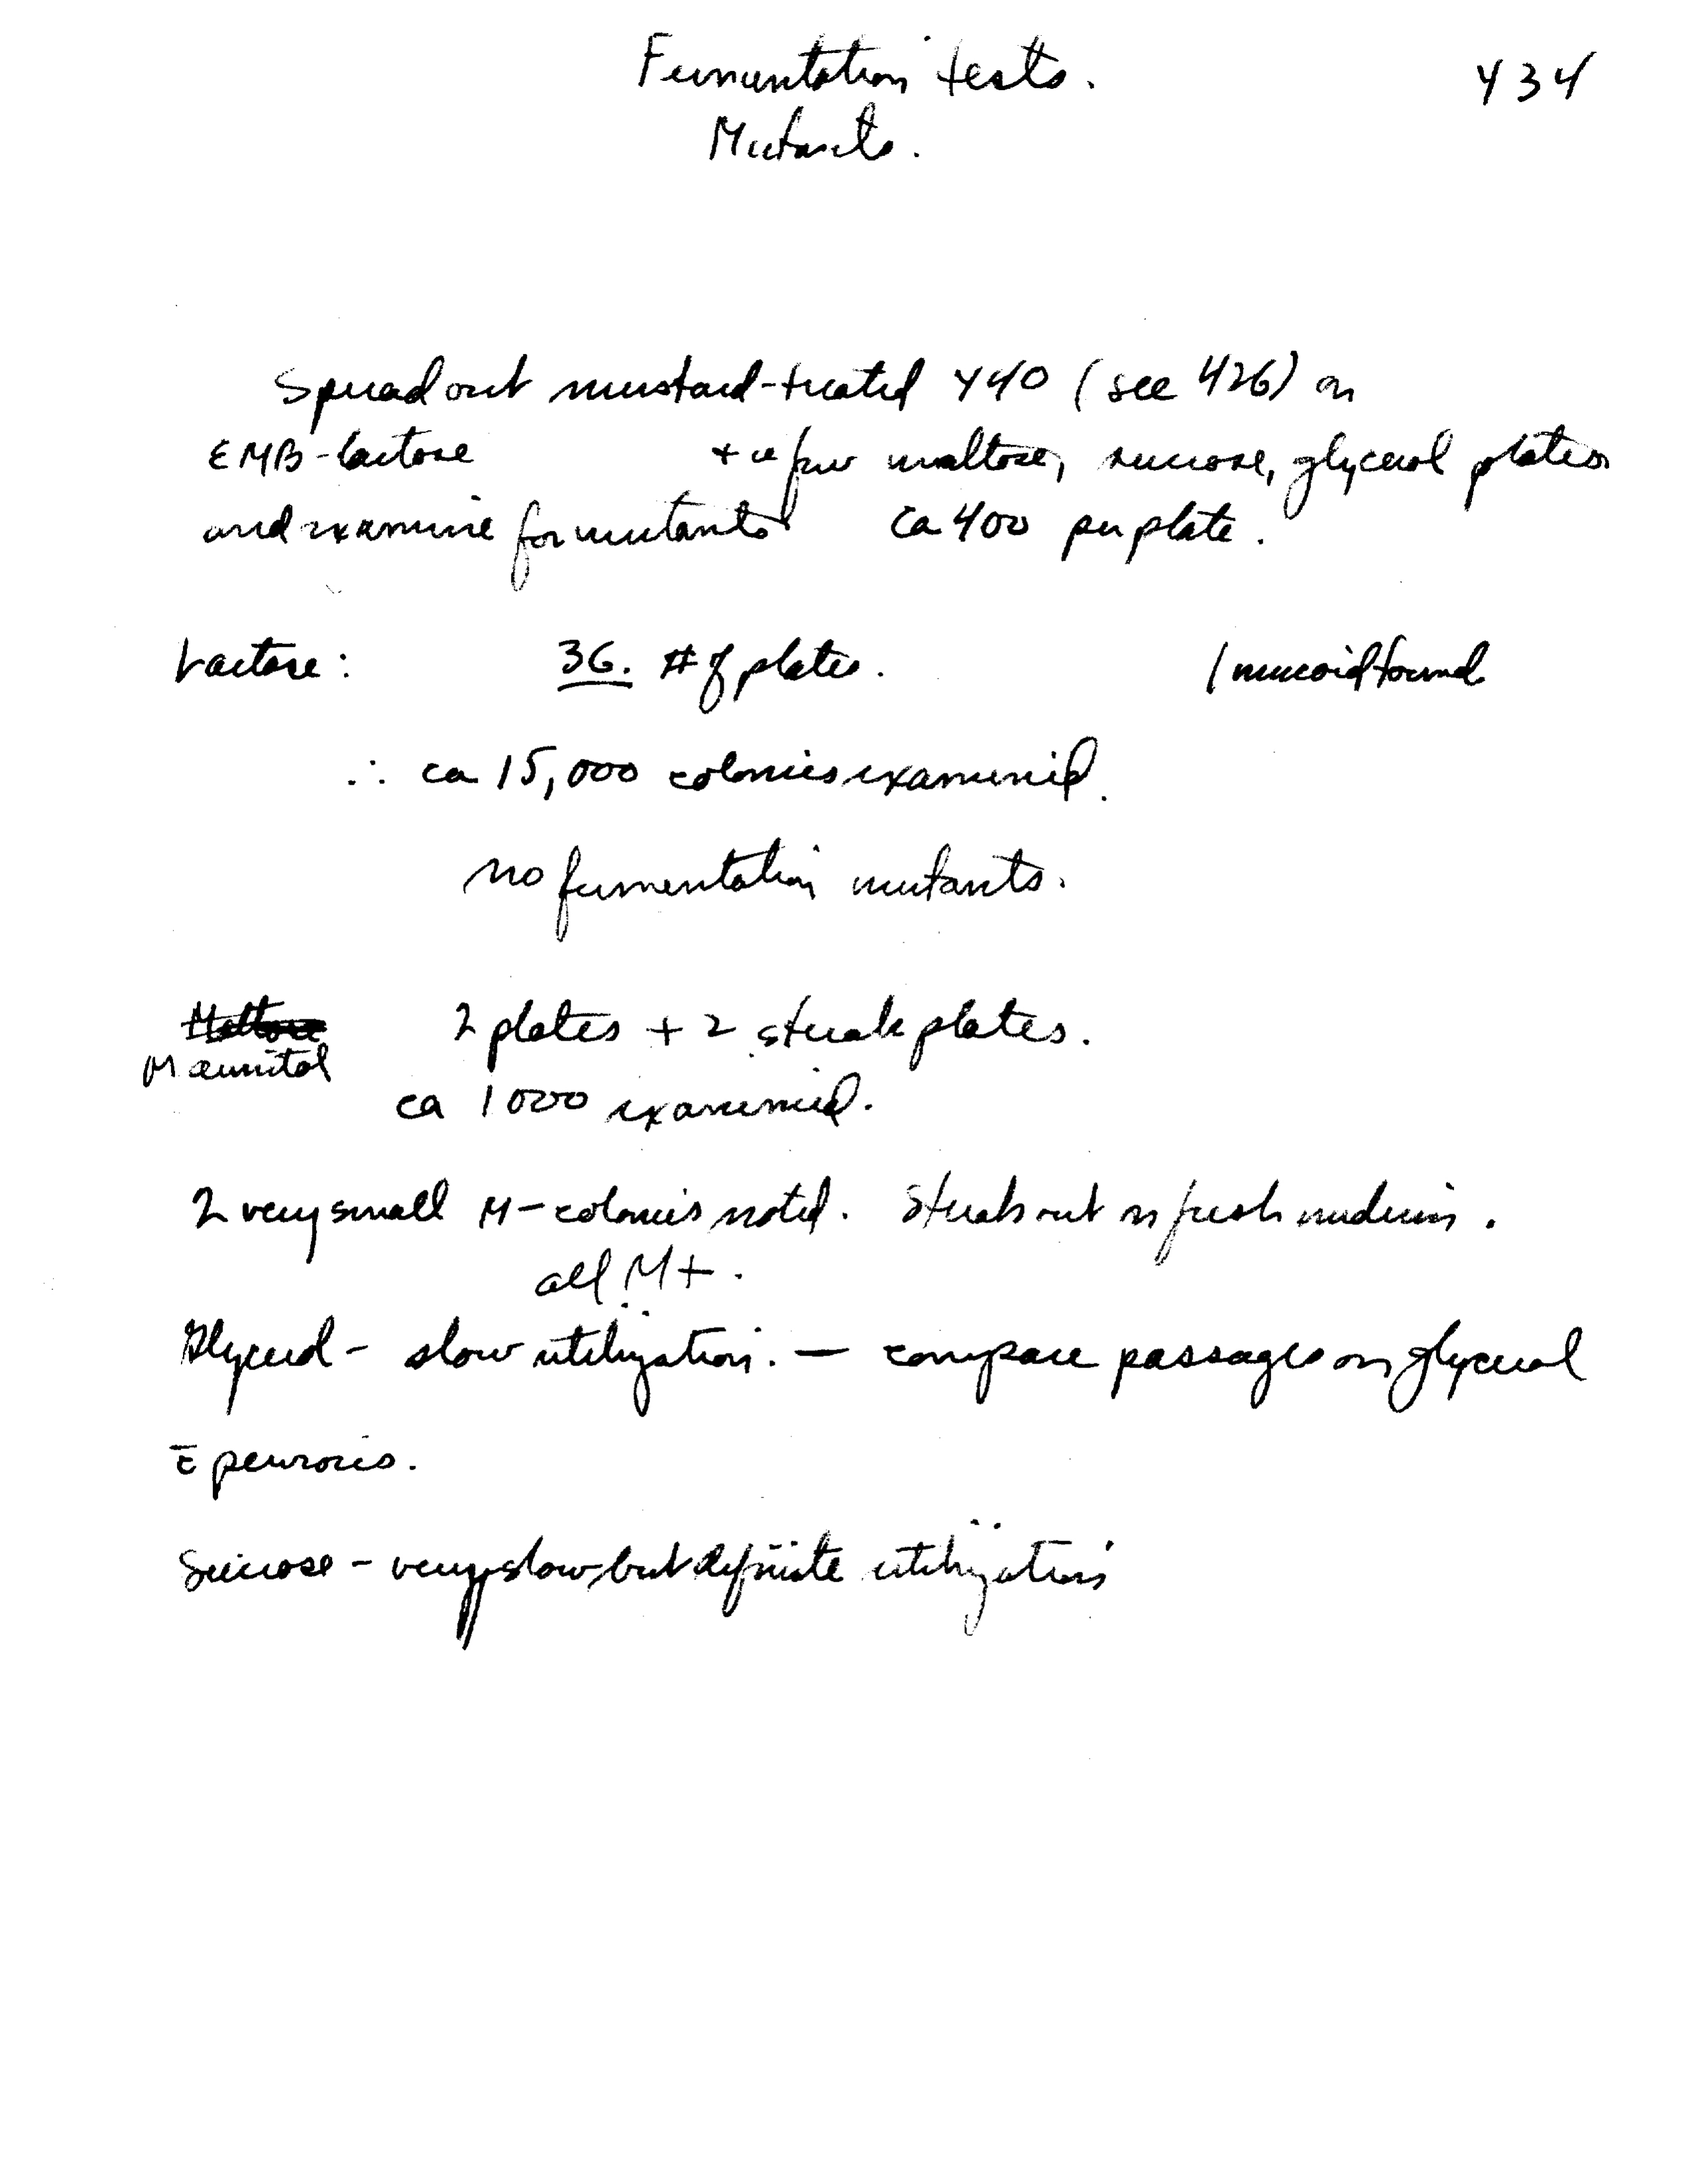 Fermentation tests.
434
Mutants.
Spread out mustard-treated Y40 (see 426) on
EMB-lactose + a few maltose, sucrose, glycerol plates
and examine for mutants ca 400 per plate.
Lactose: 36. # of plates. 1 mucoid found
∴ ca 15,000 colonies examined.
no fermentation mutants.
Maltose 2 plates + 2 streak plates.
Mannitol
ca 1000 examined.
2 very small M- colonies noted. Streak out on fresh medium.
all M+.
Glycerol - slow utilization. — compare passages on glycerol
c̄ previous.
Sucrose - very slow but definite utilization